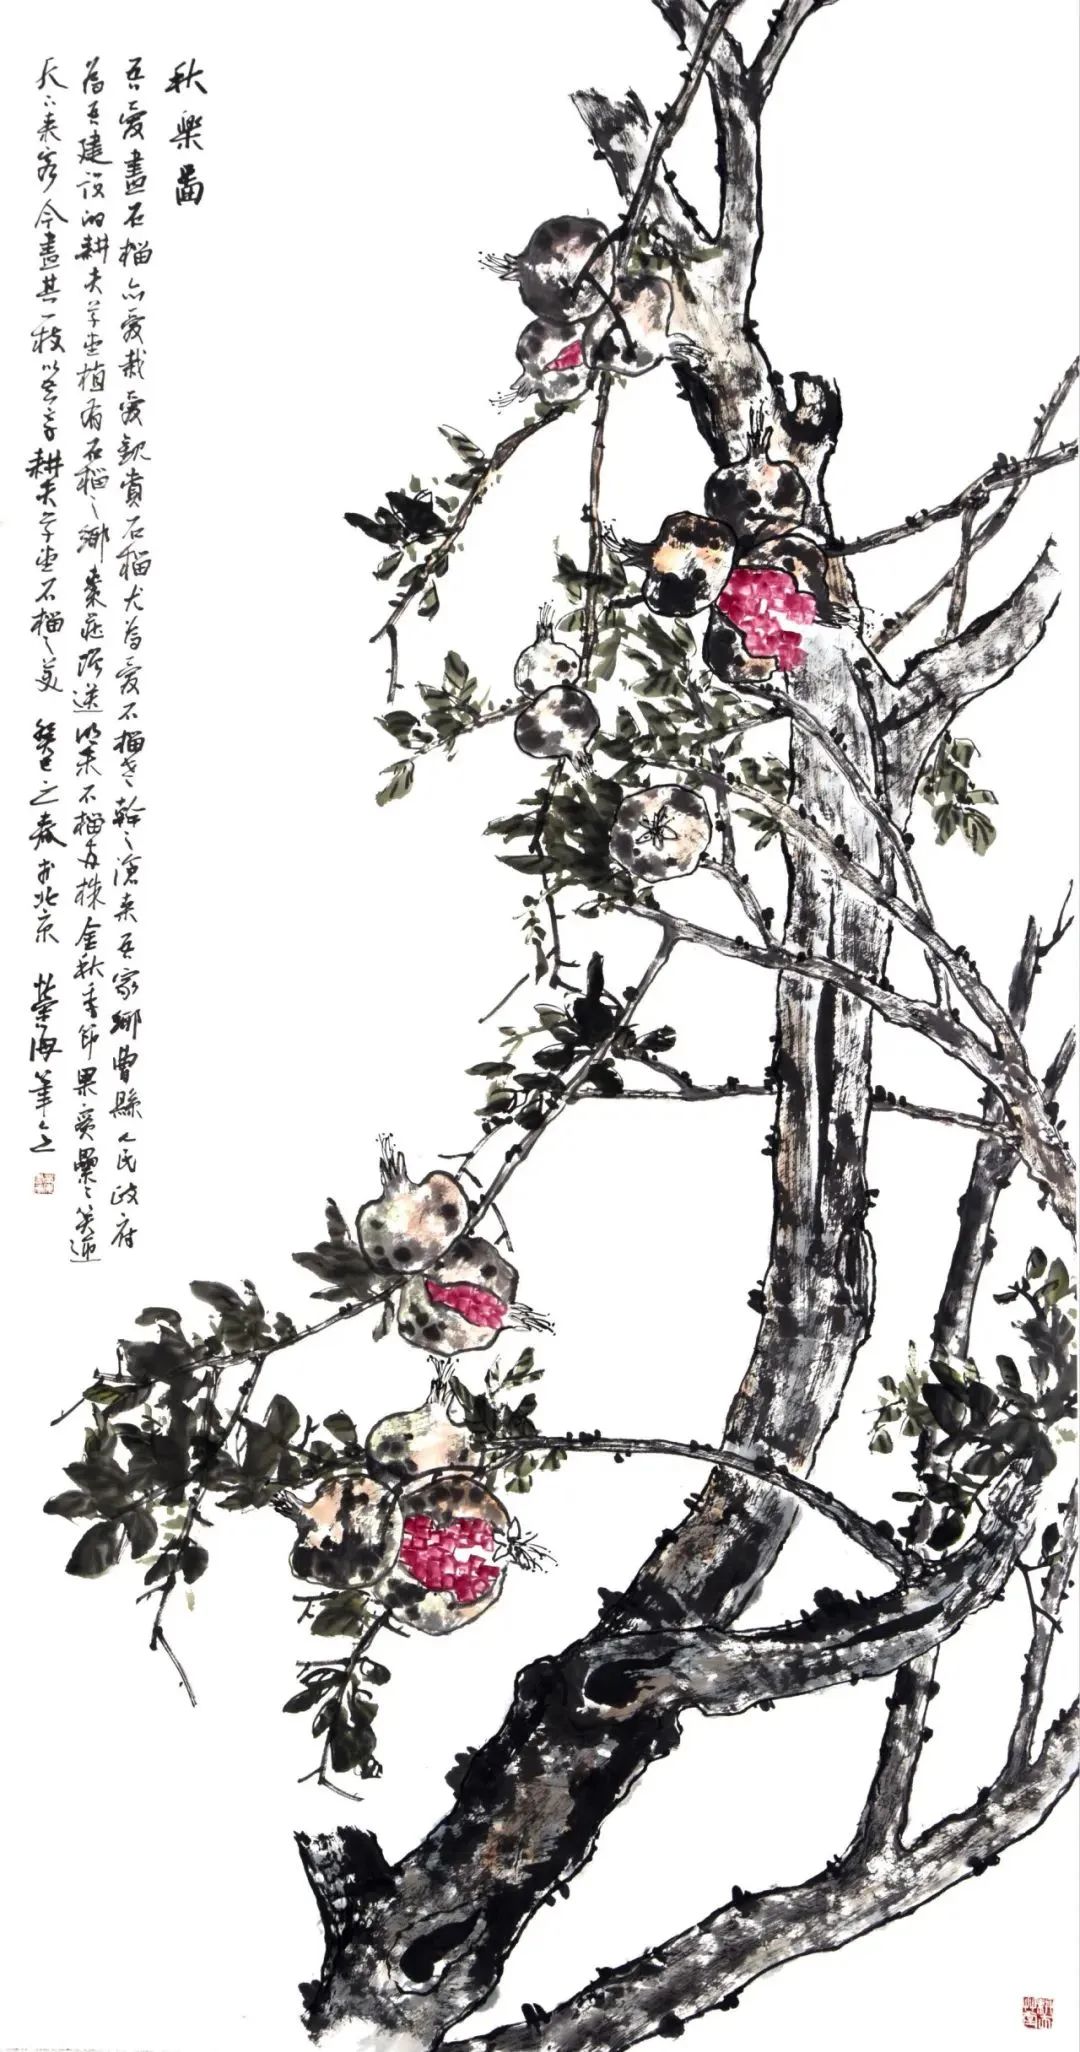 秋樂圖
吾愛畫石榴亦愛栽愛觀賞石榴尤為愛石榴老幹之滄桑吾家鄉曹縣人民政府
為吾建設的耕夫草堂植有石榴之鄉棗莊所送石榴 株金秋季節果實纍纍笑迎
天下來客今畫其一枝以 耕夫草堂石榴之美 癸巳之春於北京 榮海筆